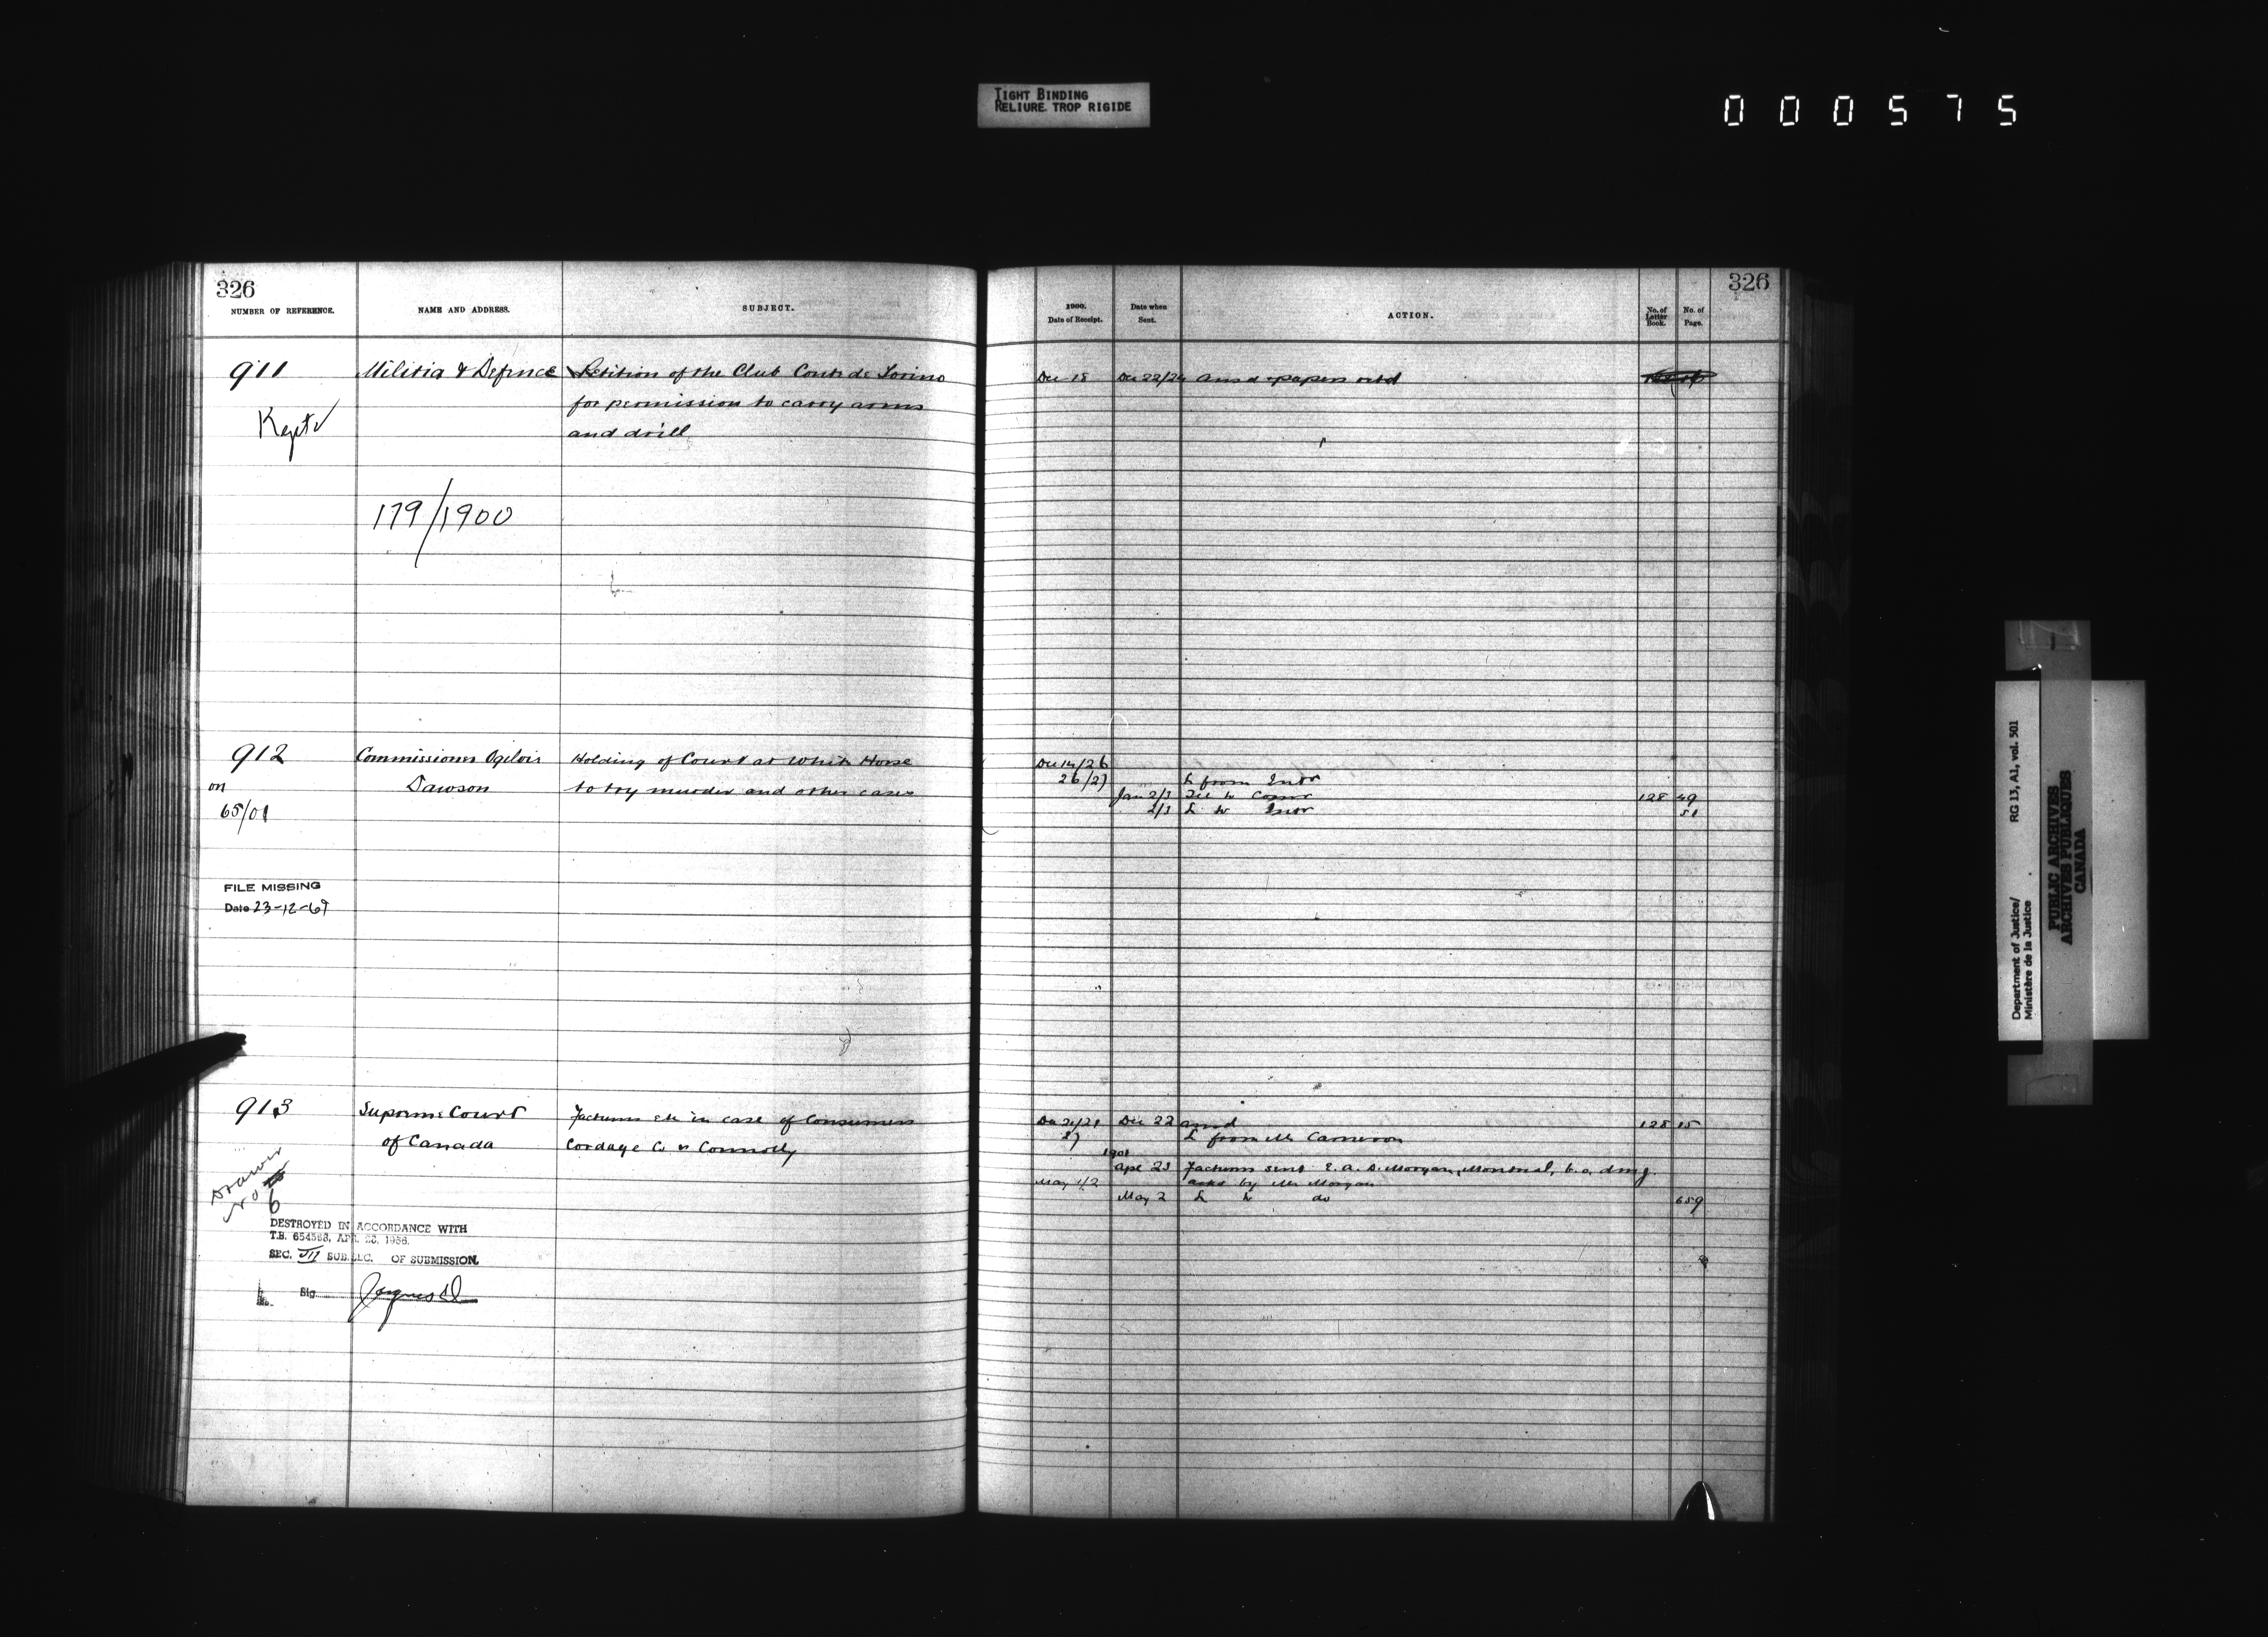 TIGHT BINDING
RELIURE TROP RIGIDE
000575
326
NUMBER OF REFERENCE.
NAME AND ADDRESS.
SUBJECT.
911
Militia & Defence
Petition of the Club Conte de Torino
for permission to carry arms
and drill
Kept
179/1900
912
Commissioner Ogilvie
Dawson
Holding of Court at White Horse
to try murder and other cases
on
65/01
FILE MISSING
Date 23-12-69
913
Supreme Court
of Canada
Factums etc in case of Consumers
Cordage Co vs Connolly
Drawer
No
6
DESTROYED IN ACCORDANCE WITH
T.B. 654568, APR. 26, 1966.
SEC. VII SUB.SEC. OF SUBMISSION.
Sig
326
1900.
Date of Receipt.
Date when
Sent.
ACTION.
No. of
Letter
Book.
No. of
Page.
Dec 18 Dec 22/24 ansd & papers retd
Dec 14/26
26/27 L from Intr
Jan 2/3 Tel to Comr 128 49
2/3 L to Intr 51
Dec 21/21 Dec 22 ansd 128 15
27 L from Mr Cameron
1901
Apr 23 Factums sent E. A. D. Morgan, Montreal,
May 1/2 by Mr Morgan
May 2 L to do 659
Department of Justice/
Ministère de la Justice
RG 13, A1, vol. 501
PUBLIC ARCHIVES
ARCHIVES PUBLIQUES
CANADA